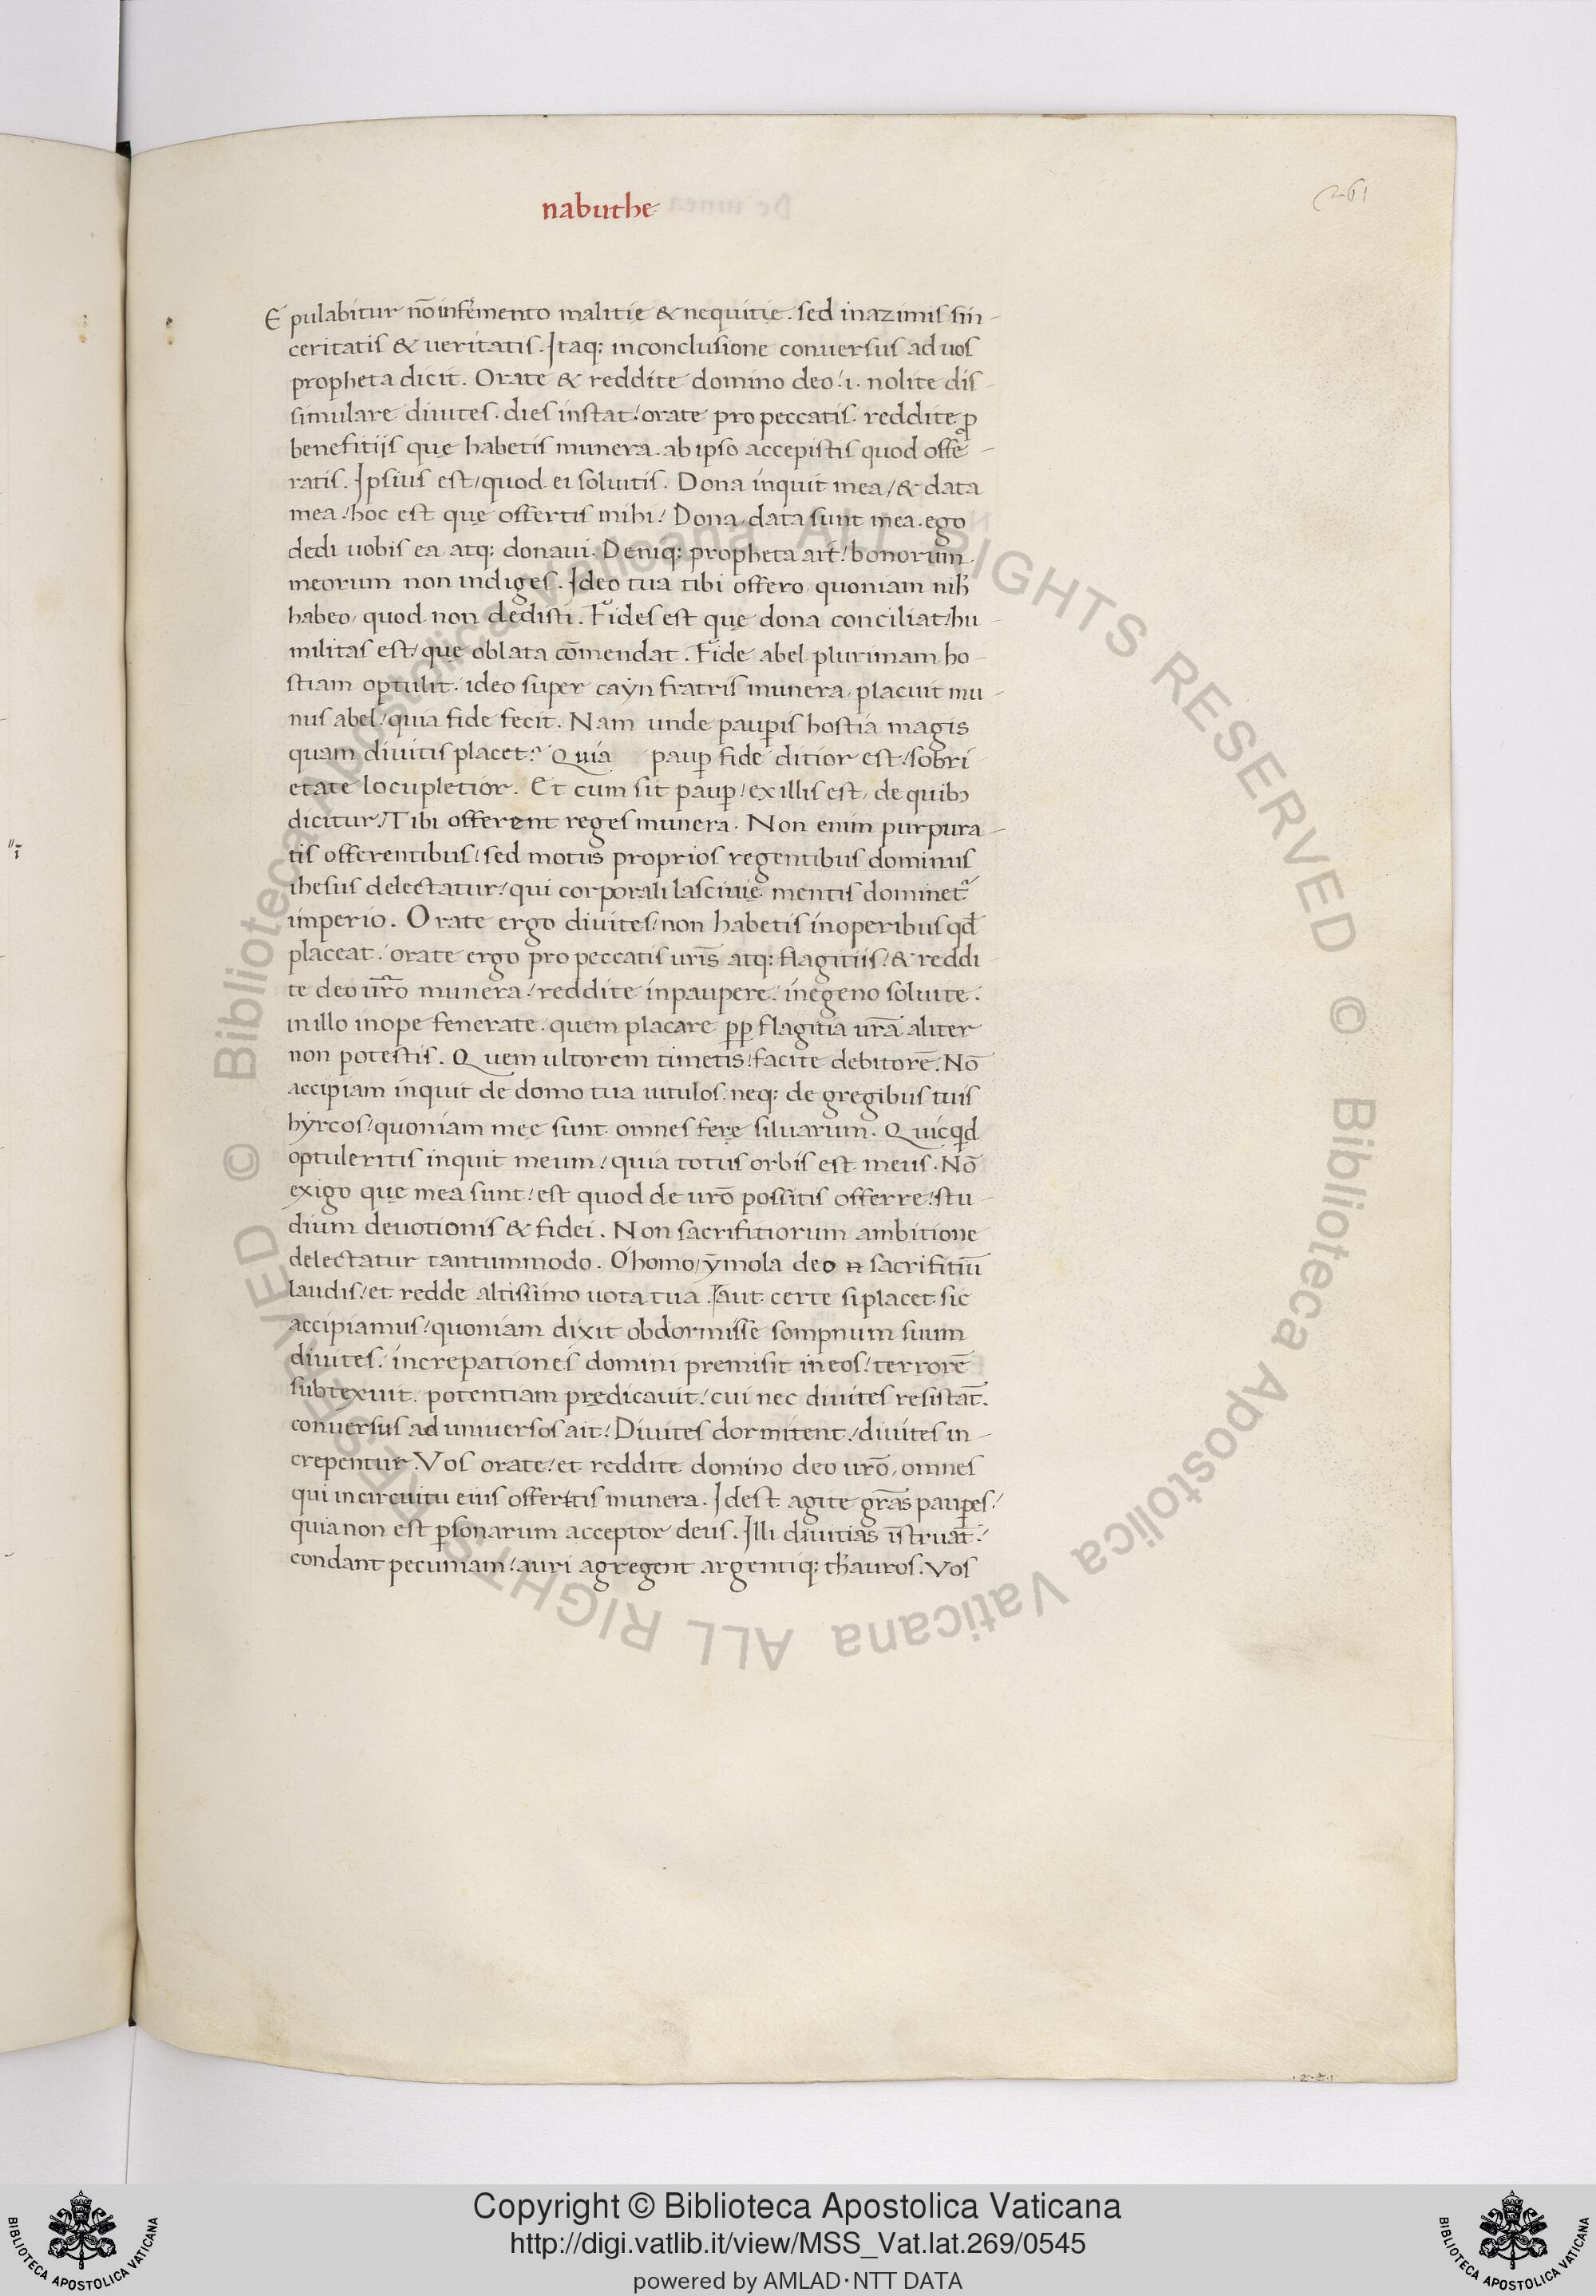 nabuthe
261
Epulabitur nō infermento malitię & nequitię. sed inazimis sin-
ceritatis & ueritatis. Itaq: inconclusione conuersus ad uos
propheta dicit. Orate & reddite domino deo! .i. nolite dis-
simulare diuites. dies instat! orate pro peccatis. reddite p̱
benefitiis quę habetis munera. ab ipso accepistis quod offe-
ratis. Ipsius est/ quod ei soluitis. Dona inquit mea/ & data
mea! hoc est quę offertis mihi! Dona, data sunt mea. ego
dedi uobis ea atq: donaui. Deniq: propheta ait! bonorum
meorum non indiges. Ideo tua tibi offero, quoniam nih̄
habeo, quod non dedisti. Fides est quę dona conciliat/ hu-
militas est! quę oblata cōmendat. Fide abel plurimam ho-
stiam optulit. ideo super cayn fratris munera, placuit mu-
nus abel! quia fide fecit. Nam unde paup̱is hostia magis
quam diuitis placet? Quia paup̱ fide ditior est! sobri
etate locupletior. Et cum sit paup̱! ex illis est, de quibꝫ
dicitur! Tibi offerent reges munera. Non enim purpura-
tis offerentibus! sed motus proprios regentibus dominus
ihesus delectatur! qui corporali lasciuię mentis dominet᷑
imperio. Orate ergo diuites! non habetis inoperibus qđ
placeat! orate ergo pro peccatis ur̄is atq: flagitiis! & reddi
te deo ur̄o munera! reddite inpaupere. inegeno soluite.
inillo inope fenerate. quem placare p̱p̱ flagitia ur̄a aliter
non potestis. Quem ultorem timetis! facite debitorē. Nō
accipiam inquit de domo tua uitulos. neq: de gregibus tuis
hyrcos! quoniam meę sunt omnes ferę siluarum. Quicqd
optuleritis inquit meum! quia totus orbis est meus. Nō
exigo quę mea sunt! est quod de ur̄o possitis offerre! stu-
dium deuotionis & fidei. Non sacrifitiorum ambitione
delectatur tantummodo. O homo/ ymola deo sacrifitiū
laudis! et redde altissimo uota tua. aut certe siplacet sic
accipiamus! quoniam dixit obdormisse sompnum suum
diuites. increpationes domini premisit in eos! terrorē
subtexuit. potentiam prędicauit! cui nec diuites resistāt.
conuersus ad uniuersos ait! Diuites dormitent! diuites in-
crepentur. Vos orate! et reddite domino deo ur̄o, omnes
qui incircuitu eius offertis munera. Idest agite gr̄as paup̱es!
quia non est p̱sonarum acceptor deus. Illi diuitias īstruāt!
condant pecuniam! auri agregent argentiq: th̄auros. Vos
Copyright © Biblioteca Apostolica Vaticana
http://digi.vatlib.it/view/MSS_Vat.lat.269/0545
powered by AMLAD·NTT DATA